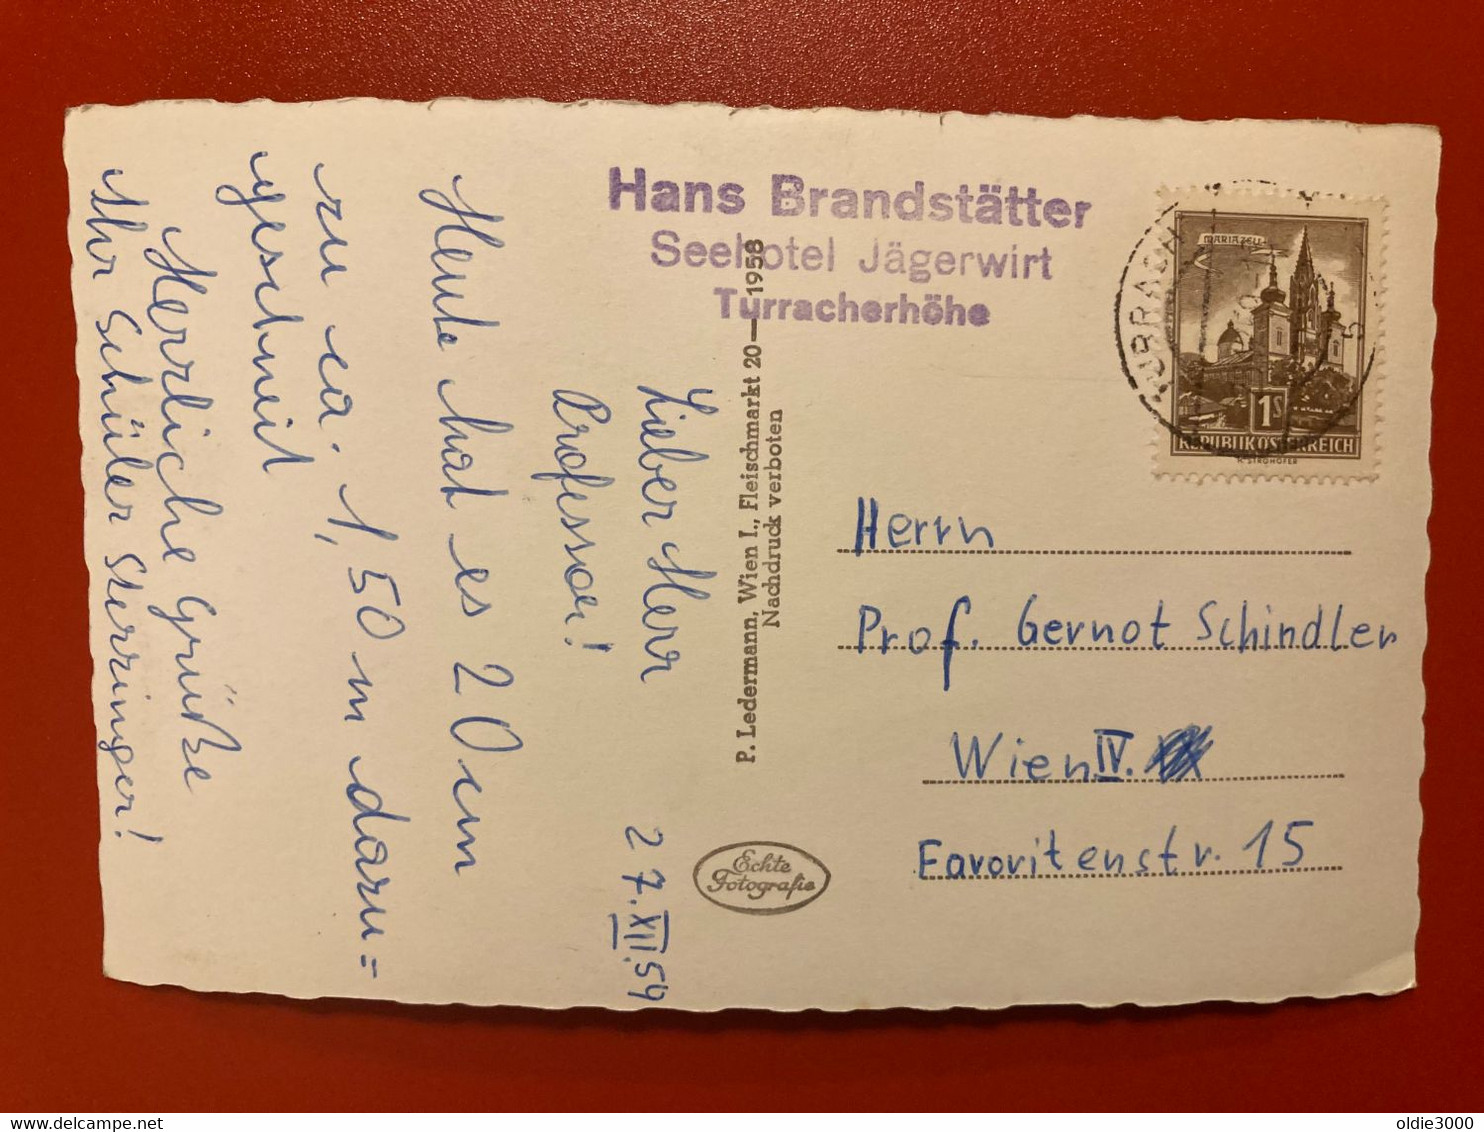 Hans Brandstätter
Seehotel Jägerwirt
Turracherhöhe
27.XII.59
Lieber Herr
Professor!
Heute hat es 20 cm
zu ca. 1,50 m dazu=
geschneit
Herrliche Grüße
Ihr Schüler Sterringer!
P. Ledermann, Wien I., Fleischmarkt 20—1958
Nachdruck verboten
Echte
Fotografie
MARIAZELL
1S
REPUBLIK ÖSTERREICH
Herrn
Prof. Gernot Schindler
Wien IV.
Favoritenstr. 15
oldie3000